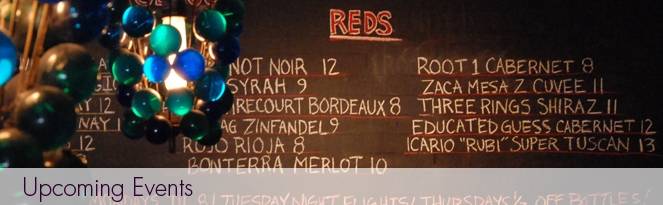 REDS
NOT NOIR 12
SYRAH 9
IRECOURT BORDEAUX 8
AG ZINFANDEL 9
ROJO RIOJA 8
BONTERRA MERLOT 10
ROOT 1 CABERNET 8
ZACA MESA Z CUVEE 11
THREE RINGS SHIRAZ 11
EDUCATED GUESS CABERNET 12
ICARIO "RUBI" SUPER TUSCAN 13
12
NAY 1
12
TUESDAY NIGHT FLIGHTS! THURSDAYS ½ OFF BOTTLES!
Upcoming Events